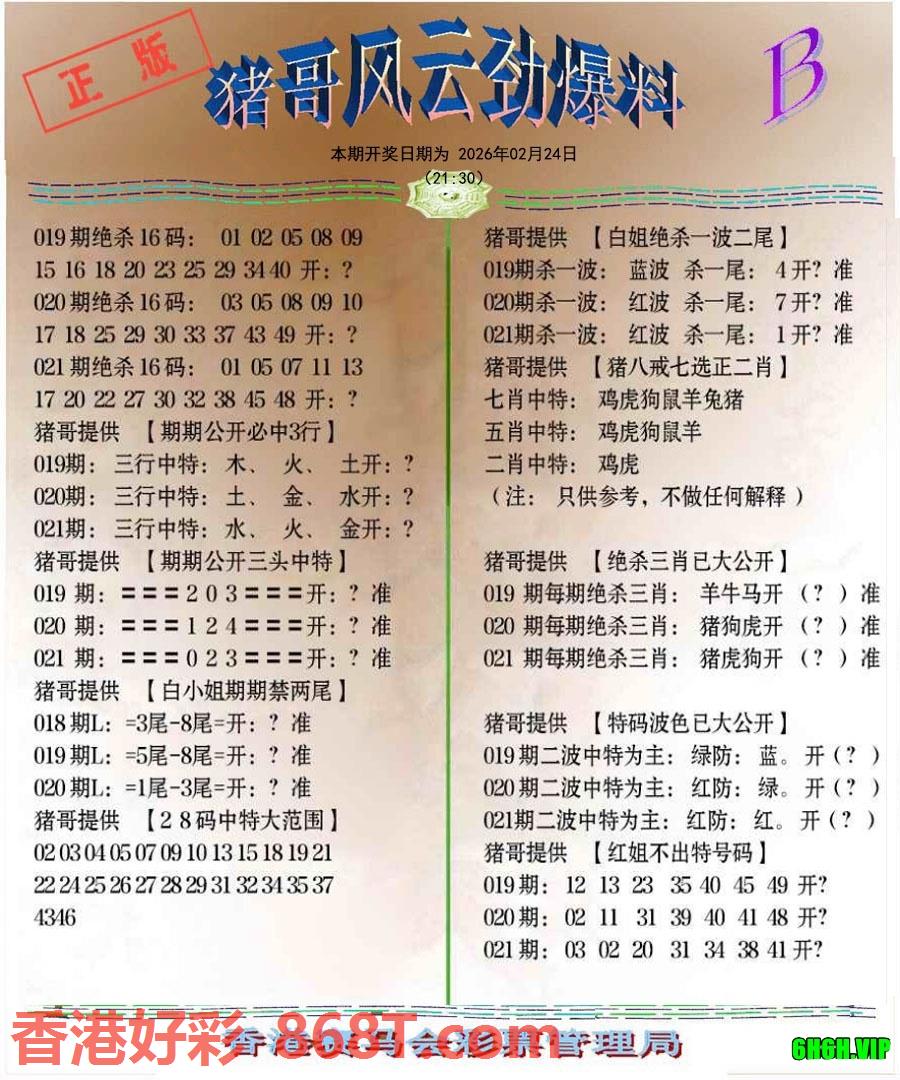 正版
猪哥风云劲爆料
B
本期开奖日期为 2026年02月24日
(21:30)
019期绝杀16码： 01 02 05 08 09
15 16 18 20 23 25 29 34 40 开：?
020期绝杀16码： 03 05 08 09 10
17 18 25 29 30 33 37 43 49 开：?
021期绝杀16码： 01 05 07 11 13
17 20 22 27 30 32 38 45 48 开：?
猪哥提供 【期期公开必中3行】
019期：三行中特：木、 火、 土开：?
020期：三行中特：土、 金、 水开：?
021期：三行中特：水、 火、 金开：?
猪哥提供 【期期公开三头中特】
019 期：〓〓〓2 0 3〓〓〓开：? 准
020 期：〓〓〓1 2 4〓〓〓开：? 准
021 期：〓〓〓0 2 3〓〓〓开：? 准
猪哥提供 【白小姐期期禁两尾】
018期L：=3尾-8尾=开：? 准
019期L：=5尾-8尾=开：? 准
020期L：=1尾-3尾=开：? 准
猪哥提供 【28码中特大范围】
02 03 04 05 07 09 10 13 15 18 19 21
22 24 25 26 27 28 29 31 32 34 35 37
43 46
猪哥提供 【白姐绝杀一波二尾】
019期杀一波： 蓝波 杀一尾： 4开? 准
020期杀一波： 红波 杀一尾： 7开? 准
021期杀一波： 红波 杀一尾： 1开? 准
猪哥提供 【猪八戒七选正二肖】
七肖中特： 鸡虎狗鼠羊兔猪
五肖中特： 鸡虎狗鼠羊
二肖中特： 鸡虎
（注： 只供参考，不做任何解释 ）
猪哥提供 【绝杀三肖已大公开】
019 期每期绝杀三肖： 羊牛马开 （? ）准
020 期每期绝杀三肖： 猪狗虎开 （? ）准
021 期每期绝杀三肖： 猪虎狗开 （? ）准
猪哥提供 【特码波色已大公开】
019期二波中特为主： 绿防： 蓝。 开（? ）
020期二波中特为主： 红防： 绿。 开（? ）
021期二波中特为主： 红防： 红。 开（? ）
猪哥提供 【红姐不出特号码】
019期： 12 13 23 35 40 45 49 开?
020期： 02 11 31 39 40 41 48 开?
021期： 03 02 20 31 34 38 41 开?
香港好彩 868T.com
香港赛马会彩票管理局
6H6H.VIP